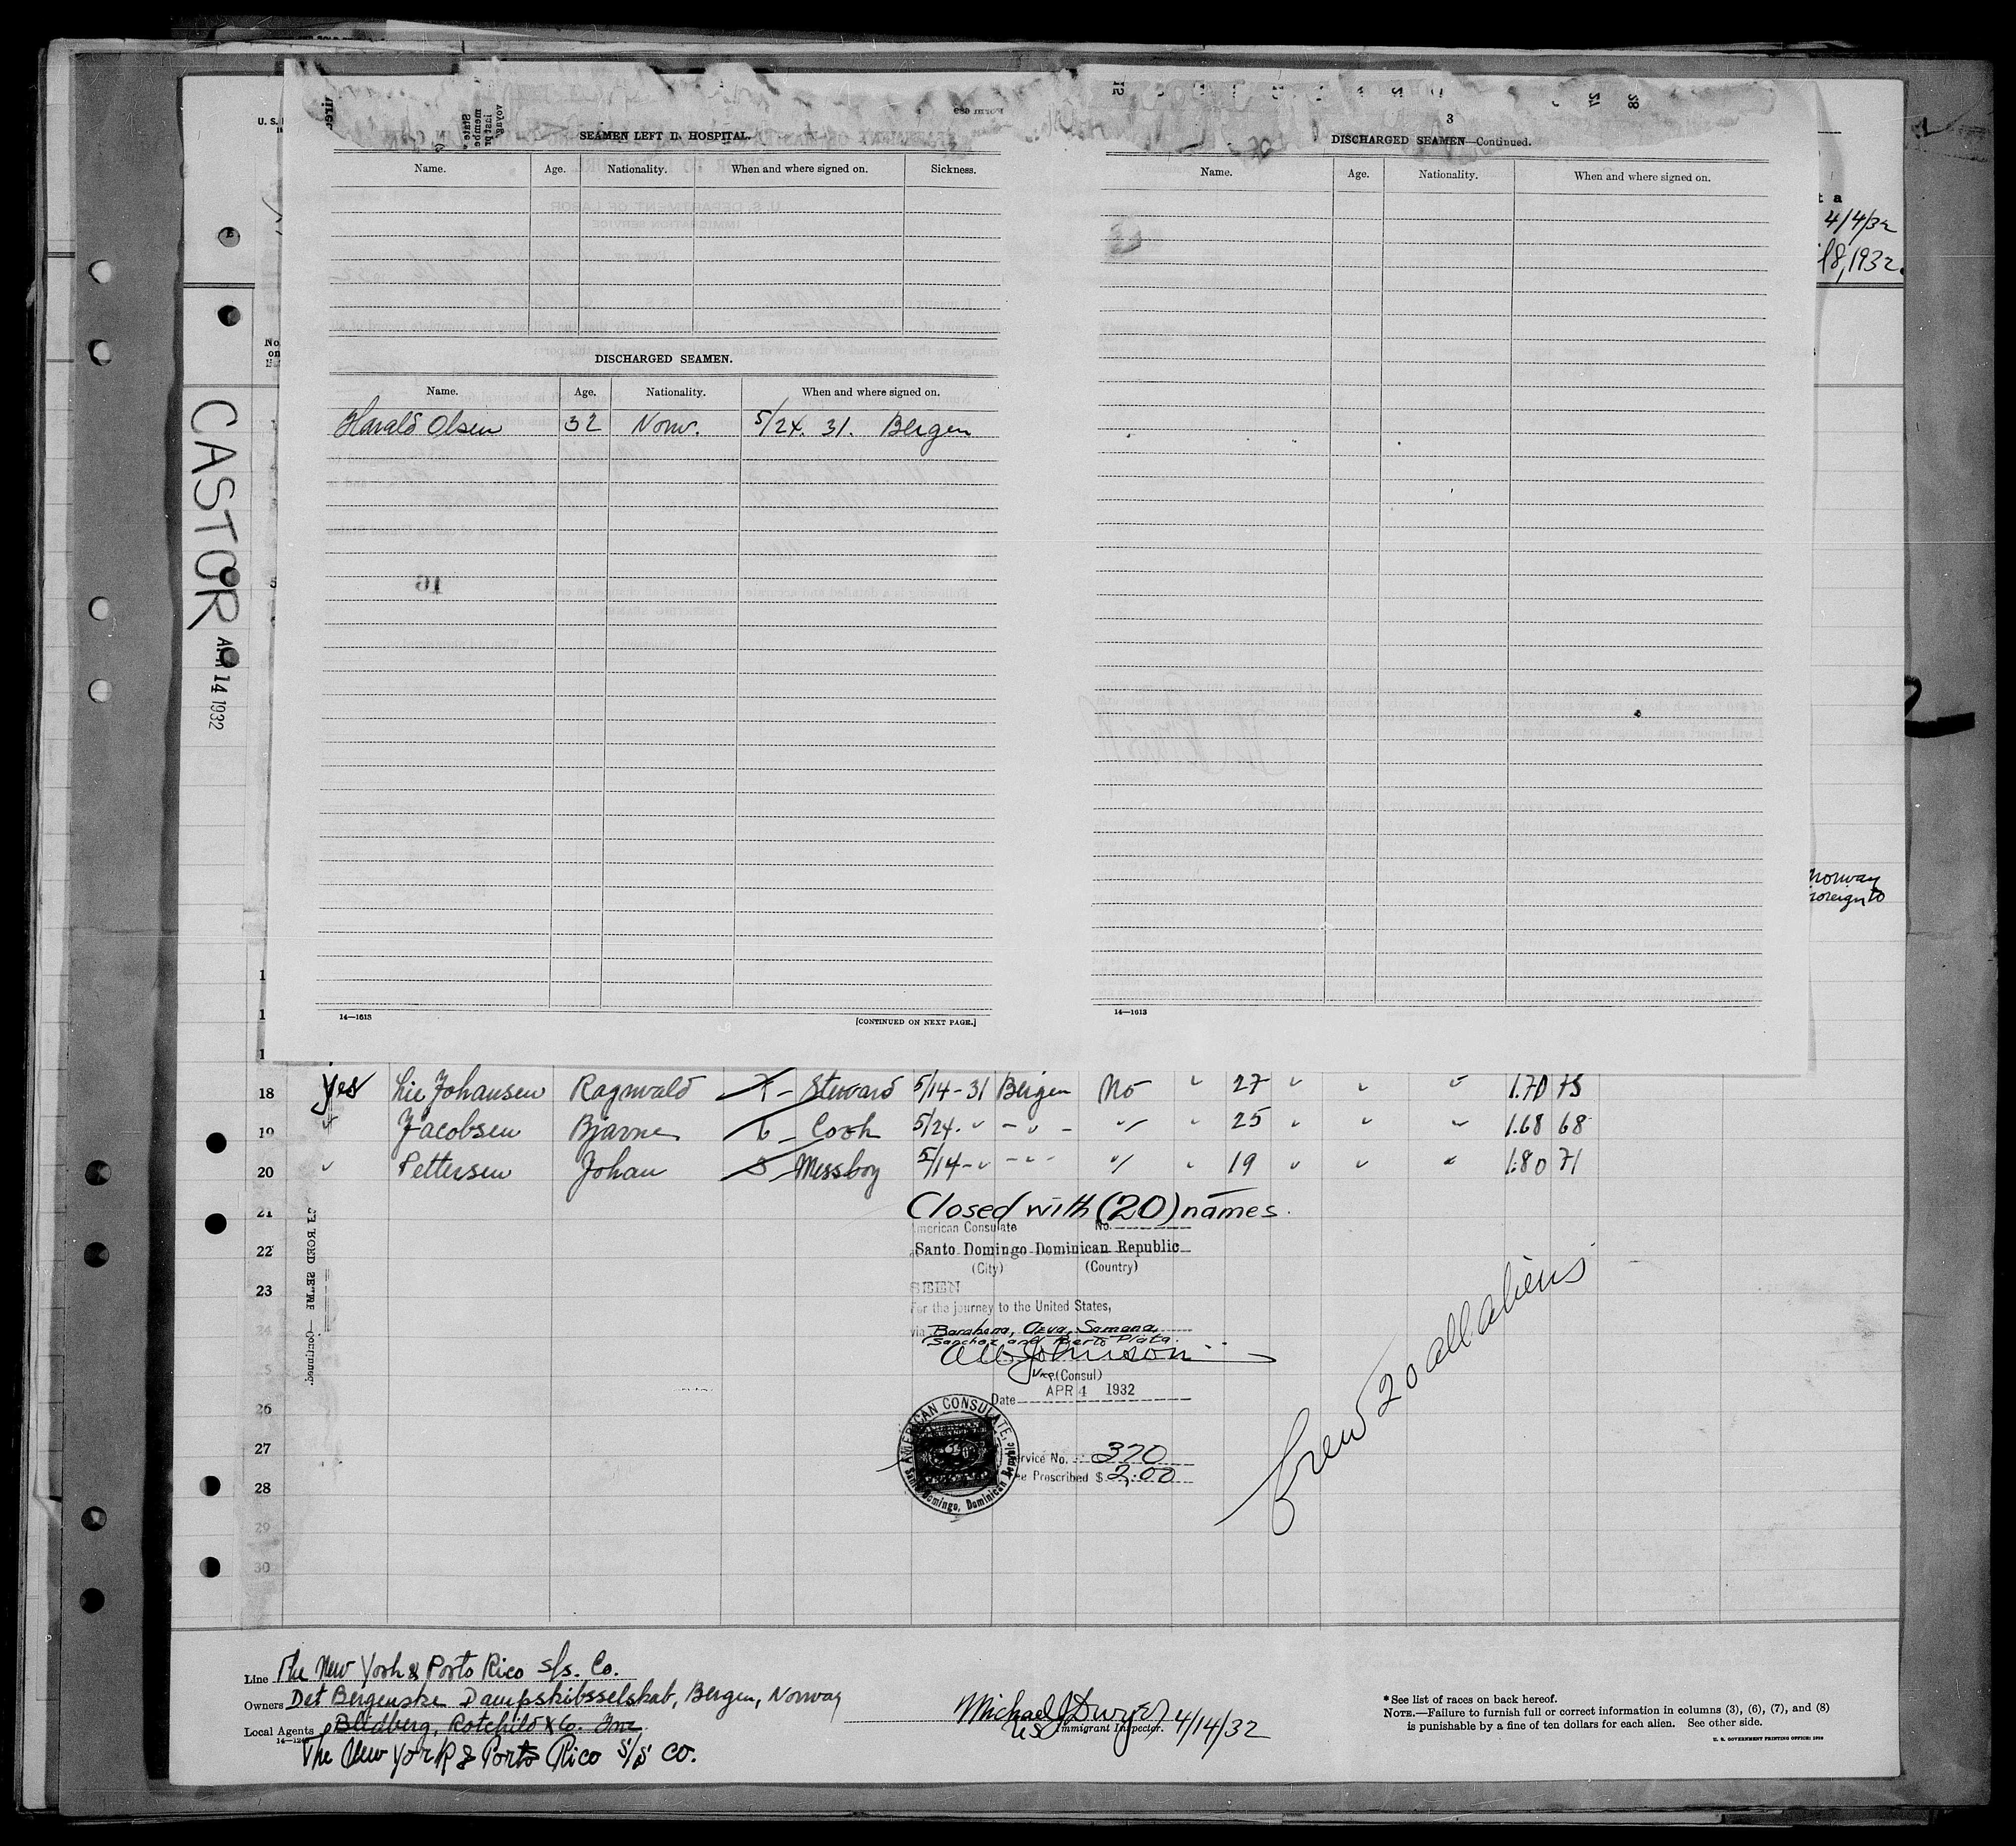 SEAMEN LEFT IN HOSPITAL.
Name. Age. Nationality. When and where signed on. Sickness.
DISCHARGED SEAMEN.
Name. Age. Nationality. When and where signed on.
Harald Olsen 32 Norw. 5/24. 31. Bergen
16
14—1613 [CONTINUED ON NEXT PAGE.]
3
DISCHARGED SEAMEN—Continued.
Name. Age. Nationality. When and where signed on.
14—1613
U. S.
4/4/32
18, 1932.
No.
on
CASTOR
APR 14 1932
Norway
foreign to
18 yes Lie Johansen Ragnvald Steward 5/14-31 Bergen No " 27 " " " 1.70 75
19 " Jacobsen Bjarne 6 - Cook 5/24. " - " - " " 25 " " " 1.68 68
20 " Pettersen Johan 5 - Messboy 5/14- " - " - " " 19 " " " 1.80 71
21
22
23
24
25
26
27
28
29
30
Closed with (20) names.
American Consulate No.
Santo Domingo Dominican Republic
(City) (Country)
SEEN
For the journey to the United States,
via Barahona, Azua, Samana,
Sanchez and Puerto Plata.
Johnson
Vice (Consul)
Date APR 4 1932
AMERICAN CONSULATE,
Santo Domingo, Dominican Republic
Service No. 370
Fee Prescribed $ 2.00
Crew 20 all aliens
Line The New York & Porto Rico S/s. Co.
Owners Det Bergenske Dampskibsselskab, Bergen, Norway
Local Agents Blidberg, Rotchild & Co. Inc
14—1240
The New York & Porto Rico S/S Co.
Michael J Dwyer 4/14/32
US Immigrant Inspector.
*See list of races on back hereof.
NOTE.—Failure to furnish full or correct information in columns (3), (6), (7), and (8)
is punishable by a fine of ten dollars for each alien. See other side.
U. S. GOVERNMENT PRINTING OFFICE: